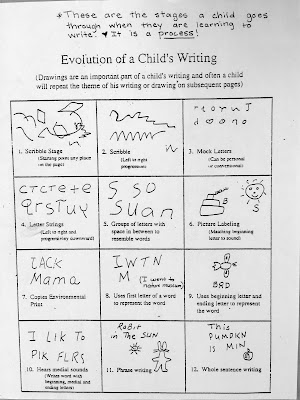 * These are the stages a child goes
through when they are learning to
write. ♥ It is a process!
Evolution of a Child's Writing
(Drawings are an important part of a child's writing and often a child
will repeat the theme of his writing or drawing on subsequent pages)
1. Scribble Stage
(Starting point any place
on the page)
2. Scribble
(Left to right
progression)
3. Mock Letters
(Can be personal
or conventional)
CTCTETE
QRSTUY
4. Letter Strings
(Left to right and
progressively downward)
S SO
SUAN
5. Groups of letters with
space in between to
resemble words
B
S
6. Picture Labeling
(Matching beginning
letter to sound)
ZACK
Mama
7. Copies Environmental
Print
IWTN
M
(I went to
8. Uses first letter of a word
to represent the word
BRD
9. Uses beginning letter and
ending letter to represent
the word
I LIK TO
PIK FLRS
10. Hears medial sounds
(Writes word with
beginning, medial and
ending letters)
RoBiT
in THE SUN
11. Phrase writing
This
PUMPKN
is MIN
12. Whole sentence writing